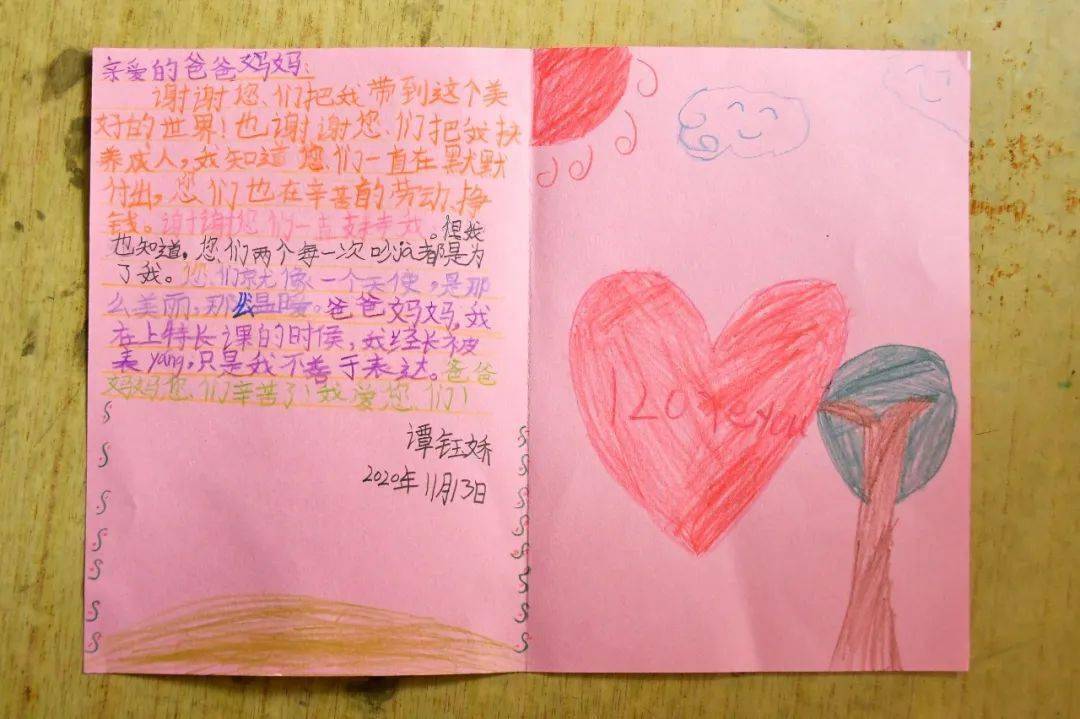 亲爱的爸爸妈妈:
谢谢您们把我带到这个美
好的世界!也谢谢您们把我扶
养成人,我知道您们一直在默默
付出,您们也在辛苦的劳动,挣
钱。谢谢您们一直支持我。但我
也知道,您们两个每一次吵架都是为
了我。您们就像一个天使,是那
么美丽,那么温暖。爸爸妈妈,我
在上特长课的时侯,我经长被
表yang,只是我不善于表达。爸爸
妈妈您们辛苦了!我爱您们!
谭钰娇
2020年11月13日
I Love you